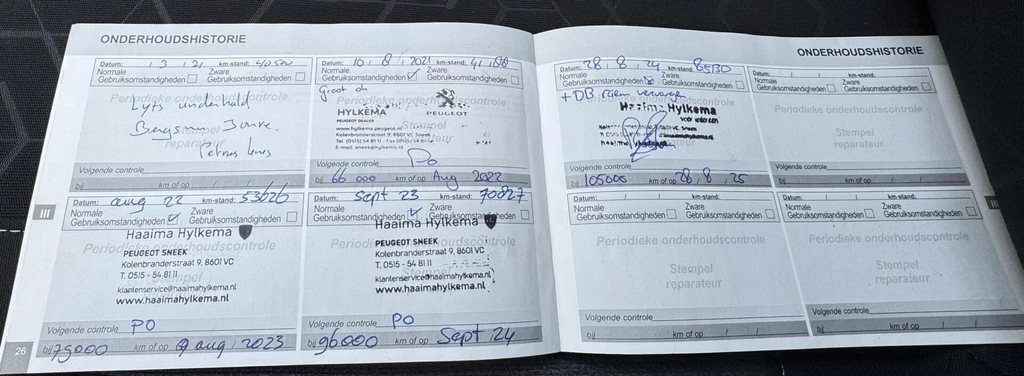 ONDERHOUDSHISTORIE
Datum: / 3 / 21 km-stand:
Normale Gebruiksomstandigheden
Zware Gebruiksomstandigheden
Periodieke onderhoudscontrole
Volgende controle
bij km of op / /
Datum: 10 / 8 / 2021 km-stand:
Normale Gebruiksomstandigheden
Zware Gebruiksomstandigheden
Groot oh
Periodieke onderhoudscontrole
HYLKEMA PEUGEOT
PEUGEOT DEALER
www.hylkema.peugeot.nl
Kolenbranderstraat 9, 8601 VC Sneek
Tel. (0515) 54 81 11
Volgende controle PO
bij 66 000 km of op Aug 2022
Datum: aug 22 km-stand: 53626
Normale Gebruiksomstandigheden
Zware Gebruiksomstandigheden
Haaima Hylkema
Periodieke onderhoudscontrole
PEUGEOT SNEEK
Kolenbranderstraat 9, 8601 VC
T. 0515 - 54 81 11
klantenservice@haaimahylkema.nl
www.haaimahylkema.nl
Volgende controle PO
bij 75000 km of op 9 aug / 2023
Datum: Sept 23 km-stand: 70827
Normale Gebruiksomstandigheden
Zware Gebruiksomstandigheden
Haaima Hylkema
Periodieke onderhoudscontrole
PEUGEOT SNEEK
Kolenbranderstraat 9, 8601 VC
T. 0515 - 54 81 11
Stempel
klantenservice@haaimahylkema.nl
www.haaimahylkema.nl
Volgende controle PO
bij 96000 km of op Sept 24
III
26
ONDERHOUDSHISTORIE
Datum: 28 / 8 / 24 km-stand: 85130
Normale Gebruiksomstandigheden
Zware Gebruiksomstandigheden
+ DB Riem vervangen
Haaima Hylkema
voor iedereen
Volgende controle
bij 105000 km of op 28 / 8 / 25
Datum: / / km-stand:
Normale Gebruiksomstandigheden
Zware Gebruiksomstandigheden
Periodieke onderhoudscontrole
Stempel
reparateur
Volgende controle
bij km of op / /
Datum: / / km-stand:
Normale Gebruiksomstandigheden
Zware Gebruiksomstandigheden
Periodieke onderhoudscontrole
Stempel
reparateur
Volgende controle
bij km of op / /
Datum: / / km-stand:
Normale Gebruiksomstandigheden
Zware Gebruiksomstandigheden
Periodieke onderhoudscontrole
Stempel
reparateur
Volgende controle
bij km of op / /
III